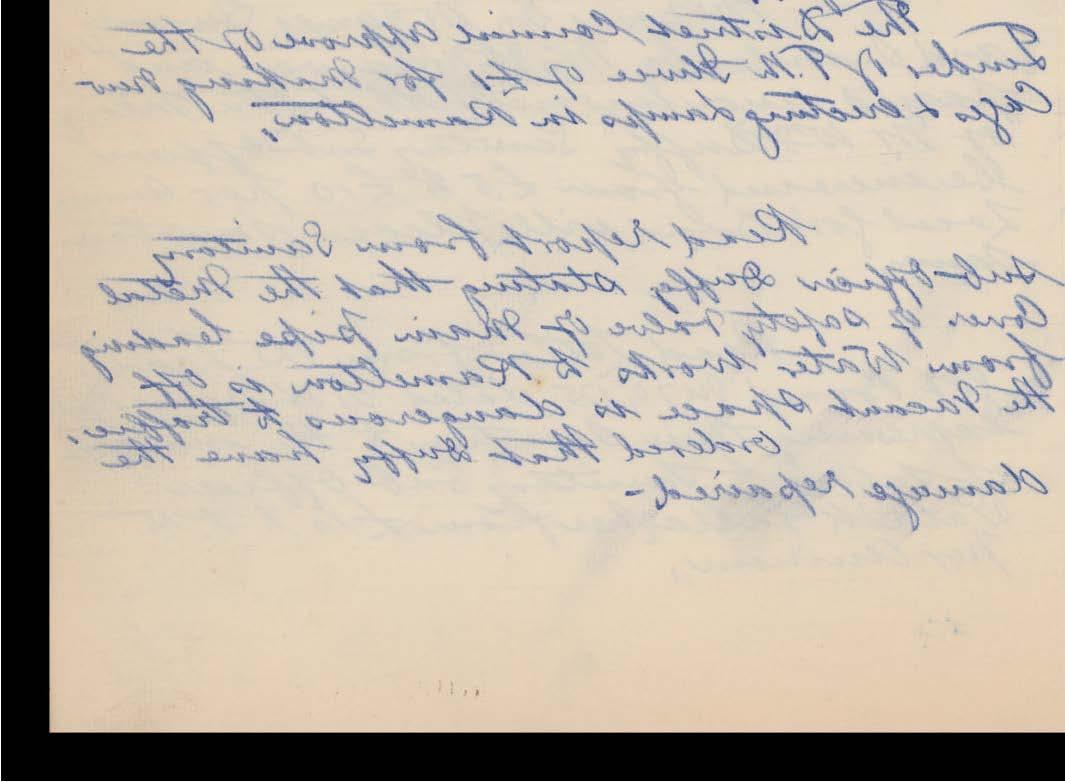 The District Council approve of the
Tender of T. M. of £1 for Making new
Cages & erecting Lamps in Ramelton,
Read report from Sanitary
Sub-Officer Duffy stating that the Metal
Cover of safety Valve of Main pipe leading
from Water Works to Ramelton is off
the Vacant space is dangerous to traffic.
Ordered that Duffy have the
damage repaired-